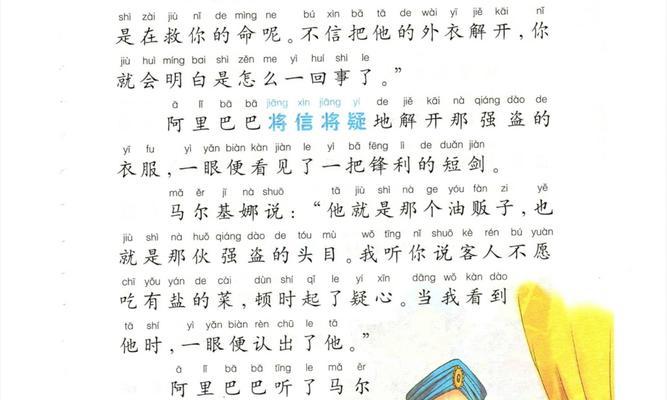 shì zài jiù nǐ de mìng ne. bú xìn bǎ tā de wài yī jiě kāi nǐ
是在救你的命呢。不信把他的外衣解开,你
jiù huì míng bai shì zěn me yì huí shì le
就会明白是怎么一回事了。”
ā lǐ bā bā jiāng xìn jiāng yí de jiě kāi nà qiáng dào de
阿里巴巴将信将疑地解开那强盗的
yī fu yì yǎn biàn kàn jiàn le yì bǎ fēng lì de duǎn jiàn
衣服,一眼便看见了一把锋利的短剑。
mǎ ěr jī nà shuō tā jiù shì nà ge yóu fàn zi yě
马尔基娜说:“他就是那个油贩子,也
jiù shì nà huǒ qiáng dào de tóu mù wǒ tīng nǐ shuō kè rén bú yuàn
就是那伙强盗的头目。我听你说客人不愿
chī yǒu yán de cài dùn shí qǐ le yí xīn dāng wǒ kàn dào
吃有盐的菜,顿时起了疑心。当我看到
tā shí yì yǎn biàn rèn chū le tā
他时,一眼便认出了他。”
ā lǐ bā bā tīng le mǎ ěr
阿里巴巴听了马尔